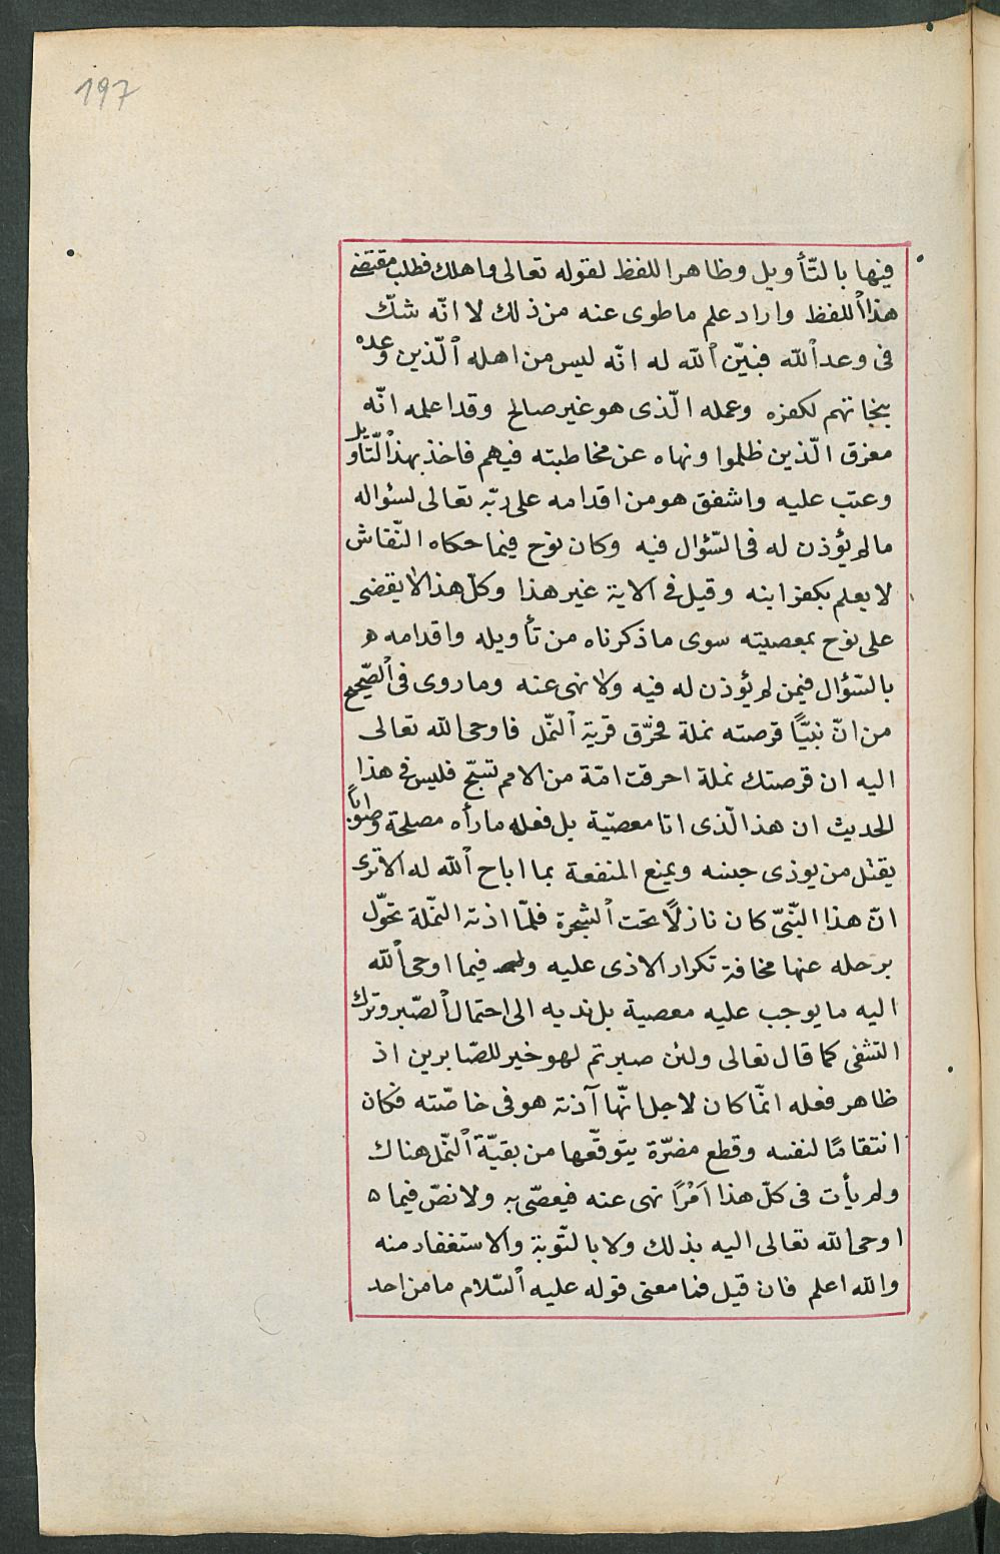 197
فيها بالتّأويل وظاهر اللفظ لقوله تعالى واهلك فطلب مقتضى
هذا اللفظ واراد علم ما طوى عنه من ذلك لا انّه شكّ
فى وعد الله فبيّن الله له انّه ليس من اهله الّذين وعده
بنجاتهم لكفره وعمله الّذى هو غير صالح وقد اعلمه انّه
مغرق الّذين ظلموا ونهاه عن مخاطبته فيهم فاخذ بهذا لتّاويل
وعتب عليه واشفق هو من اقدامه على ربّه تعالى لسئواله
ما لم يؤذن له فى السّئوال فيه وكان نوح فيما حكاه النّقاش
لا يعلم بكفر ابنه وقيل فى الاية غير هذا وكلّ هذا لا يقضى
على نوح بمعصيته سوى ما ذكرناه من تأويله واقدامه ه
بالسّؤال فيمن لم يئوذن له فيه ولا نهى عنه وما روى فى الصّحيح
من انّ نبيّاً قرصته نملة فحرّق قرية النّمل فاوحى الله تعالى
اليه ان قرصتك نملة احرقت امّة من الامم تسبّح فليس فى هذا
الحديث ان هذا لّذى اتا معصيّة بل فعله ما رأه مصلحة وصواباً
يقتل من يوذى جنسه ويمنع المنفعة بما اباح الله له الا ترى
انّ هذا النّبىّ كان نازلاً تحت الشجرة فلمّا اذته النّملة تحوّل
برحله عنها مخافة تكرار الاذى عليه وليس فيما اوحى الله
اليه ما يوجب عليه معصية بل ندبه الى احتمال الصّبر وترك
التشفى كما قال تعالى ولئن صبرتم لهو خير للصّابرين اذ
ظاهر فعله انّما كان لاجل انّها آذته هو فى خاصّته فكان
انتقامًا لنفسه وقطع مضرّة يتوقّعها من بقيّة النّمل هناك
ولم يأت فى كلّ هذا اَمْرًا نهى عنه فيعصّى به ولا نصّ فيما ه
اوحى الله تعالى اليه بذلك ولا بالتّوبة والاستغفار منه
والله اعلم فان قيل فما معنى قوله عليه السّلام ما من احد